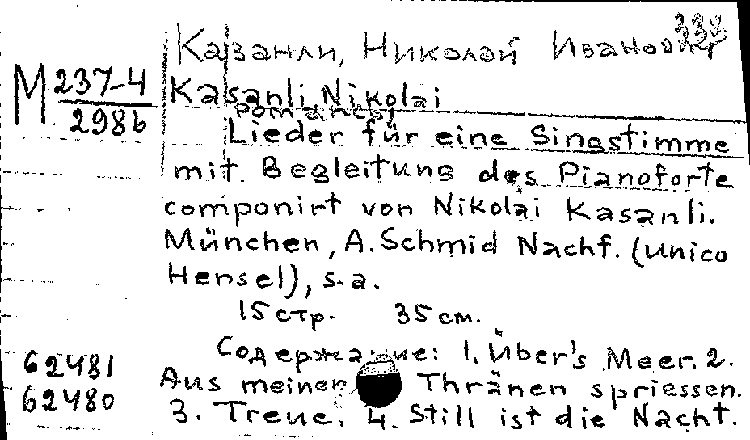 338
Казанли, Николай Иванович
М 237-4
2986
Kasanli, Nikolai
[Romances]
Lieder für eine Singstimme
mit Begleitung des Pianoforte
componirt von Nikolai Kasanli.
München, A. Schmid Nachf. (Unico
Hensel), s. a.
15 стр. 35 см.
Содержание: 1. Über's Meer. 2.
Aus meinen Thränen spriessen.
3. Treue. 4. Still ist die Nacht.
62481
62480